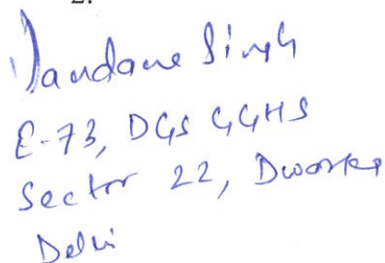 2.
Vandana Singh
E-73, DGS GGHS
Sector 22, Dwarka
Delhi